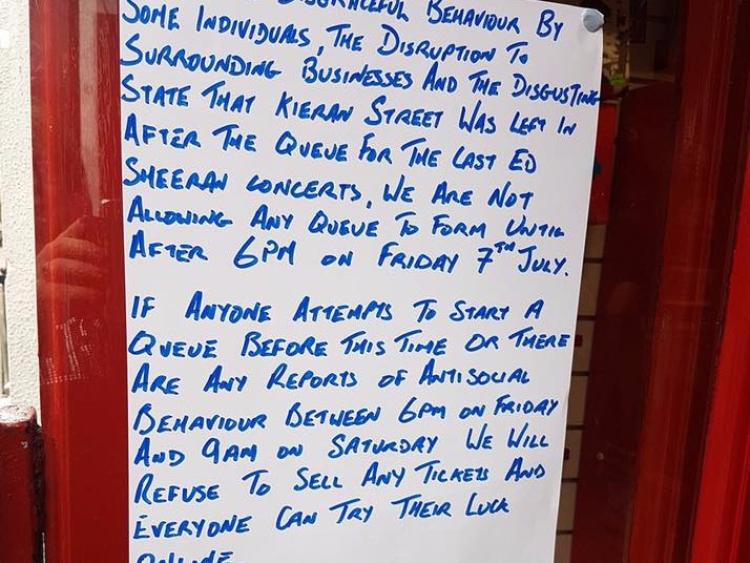 DISGRACEFUL BEHAVIOUR BY
SOME INDIVIDUALS, THE DISRUPTION TO
SURROUNDING BUSINESSES AND THE DISGUSTING
STATE THAT KIERAN STREET WAS LEFT IN
AFTER THE QUEUE FOR THE LAST ED
SHEERAN CONCERTS, WE ARE NOT
ALLOWING ANY QUEUE TO FORM UNTIL
AFTER 6PM ON FRIDAY 7TH JULY.
IF ANYONE ATTEMPTS TO START A
QUEUE BEFORE THIS TIME OR THERE
ARE ANY REPORTS OF ANTISOCIAL
BEHAVIOUR BETWEEN 6PM ON FRIDAY
AND 9AM ON SATURDAY WE WILL
REFUSE TO SELL ANY TICKETS AND
EVERYONE CAN TRY THEIR LUCK
ONLINE